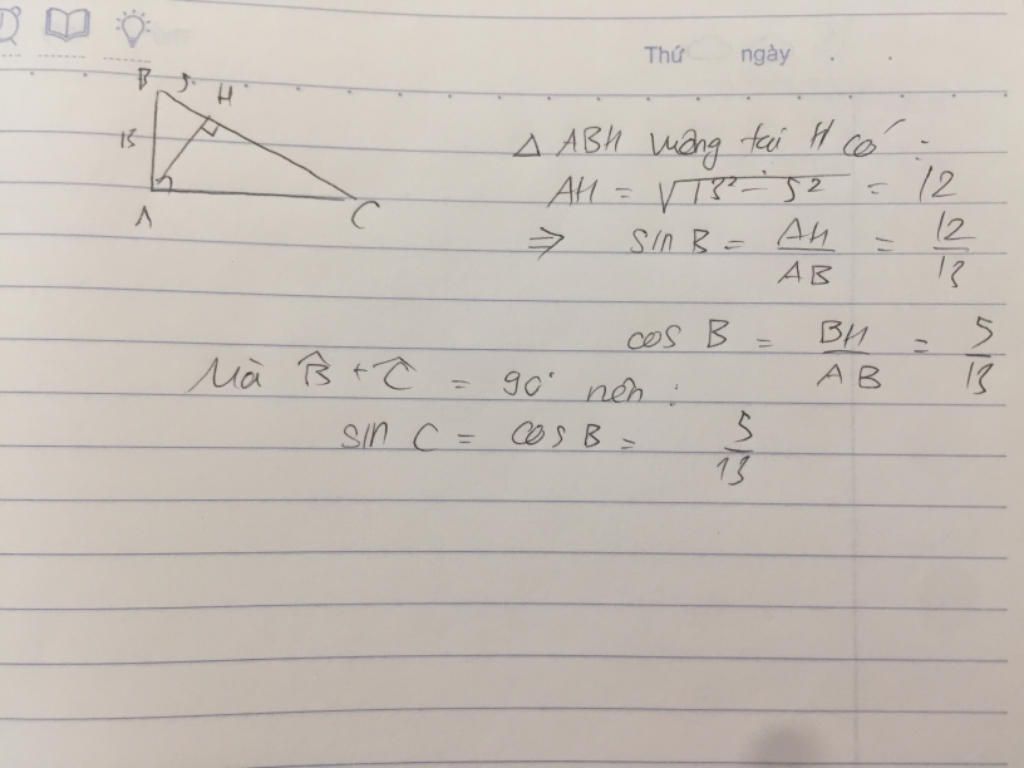 Thứ ngày
B 5 H
13
A C
Δ ABH vuông tại H có:
AH = √13² - 5² = 12
⇒ sin B = AH/AB = 12/13
cos B = BH/AB = 5/13
Mà B̂ + Ĉ = 90° nên:
sin C = cos B = 5/13